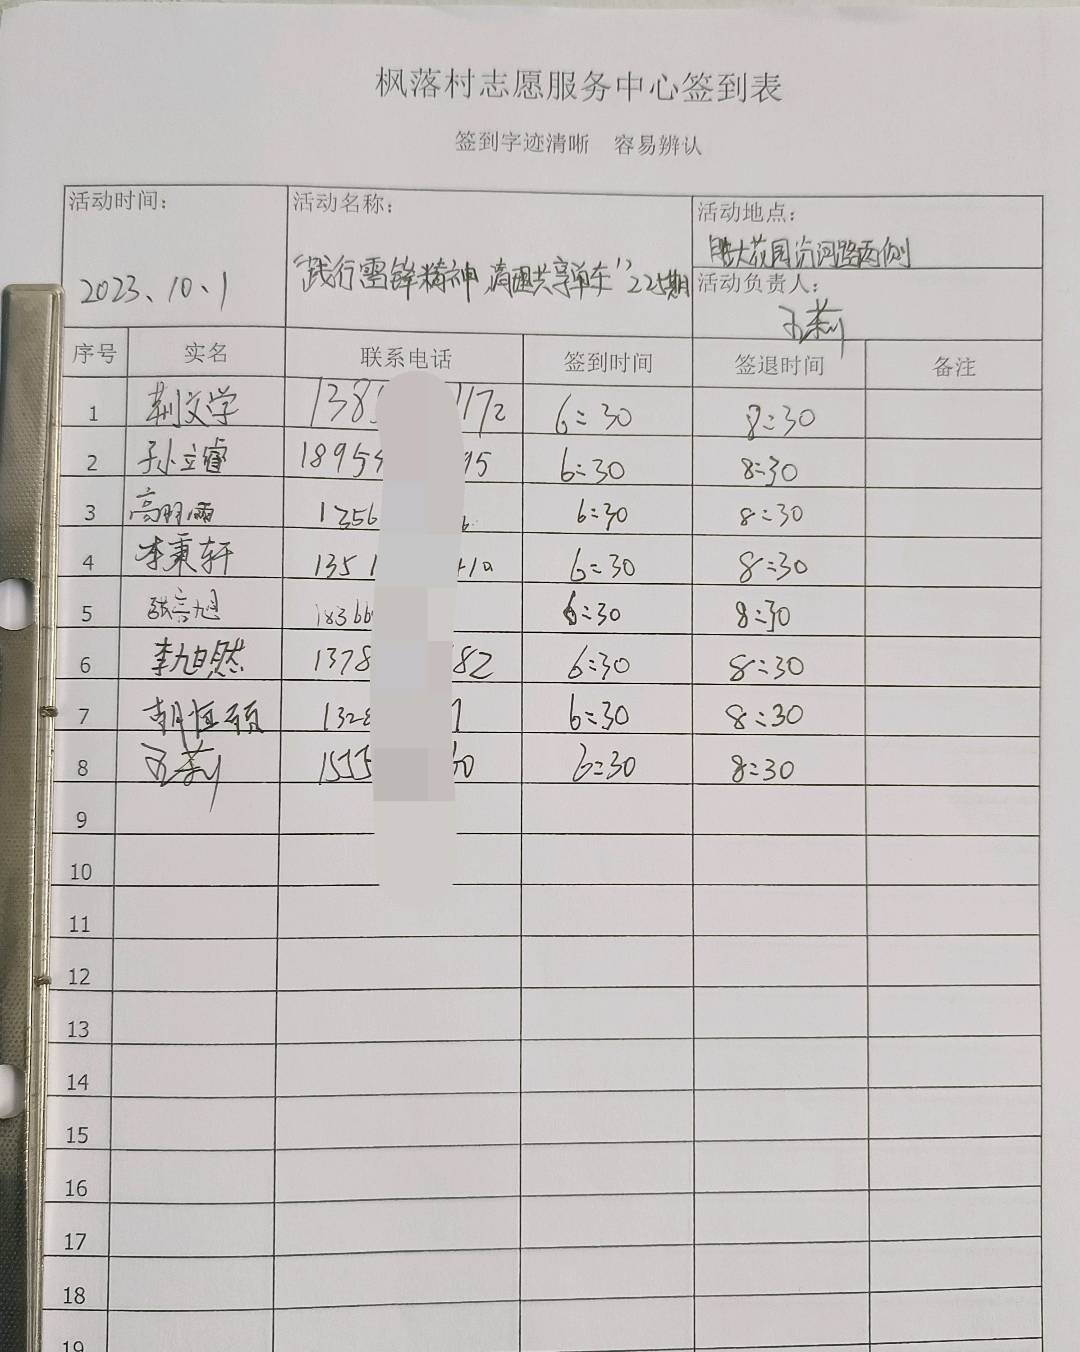 枫落村志愿服务中心签到表
签到字迹清晰 容易辨认
活动时间: 活动名称: 活动地点:
2023、10、1 “践行雷锋精神,清理共享单车”225期 胜大花园汾河路两侧
活动负责人:
王莉
序号 实名 联系电话 签到时间 签退时间 备注
1 荆文学 138 172 6:30 8:30
2 孙立睿 1895 95 6:30 8:30
3 高羽丽 1356 6:30 8:30
4 李秉轩 1351 6:30 8:30
5 1836 6:30 8:30
6 李旭然 1378 82 6:30 8:30
7 胡恒硕 1328 6:30 8:30
8 王莉 6:30 8:30
9
10
11
12
13
14
15
16
17
18
19